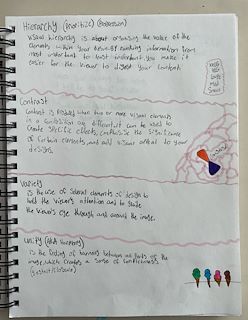 Hierarchy (prioritize) (progression)
Visual hierarchy is about organizing the value of the
elements within your design by ranking information from
most important to least important. you make it
easier for the viewer to digest your content.
Contrast
Contrast is produced when two or more visual elements
in a composition are different. it can be used to
create specific effects, emphasize the significance
of certain elements, and add visual appeal to your
designs.
Variety
is the use of several elements of design to
hold the viewers attention and to guide
the viewers eye through and around the image.
Unity
is the feeling of harmony between all parts of the
image, which creates a sense of completeness
(gestalt/closure)